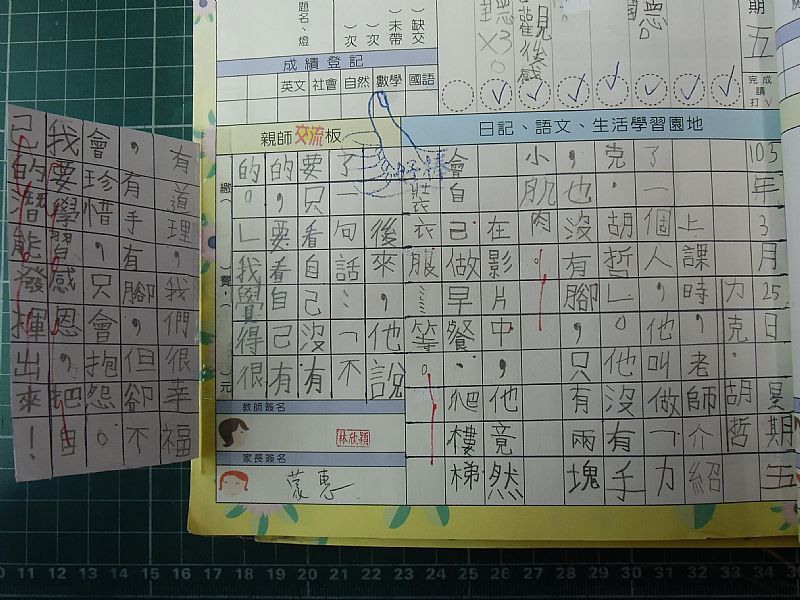 題名、燈
︶次
︶次 未帶
缺交
聽
3
觀後感
聽
期五
完成請打V
成績登記
英文 社會 自然 數學 國語
親師交流板
日記、語文、生活學習園地
105年3月25日星期五
力克．胡哲
上課時，老師介紹
了一個人，他叫做「力
克．胡哲」。他沒有手
，也沒有腳，只有兩塊
小肌肉。
在影片中，他竟然
會自己做早餐、爬樓梯
衣服……等。
後來，他說
了一句話：「不
要只看自己沒有
的，要看自己有
的。」我覺得很
有道理，我們很幸福
，有手有腳，但卻不
會珍惜，只會抱怨。
我要學習感恩，把自
己的智能發揮出來！
繳︵ ︶費， ︵ ︶元
教師簽名
林欣穎
家長簽名
蒙惠
0 11 12 13 14 15 16 17 18 19 20 21 22 23 24 25 26 27 28 29 30 31 32 33 34